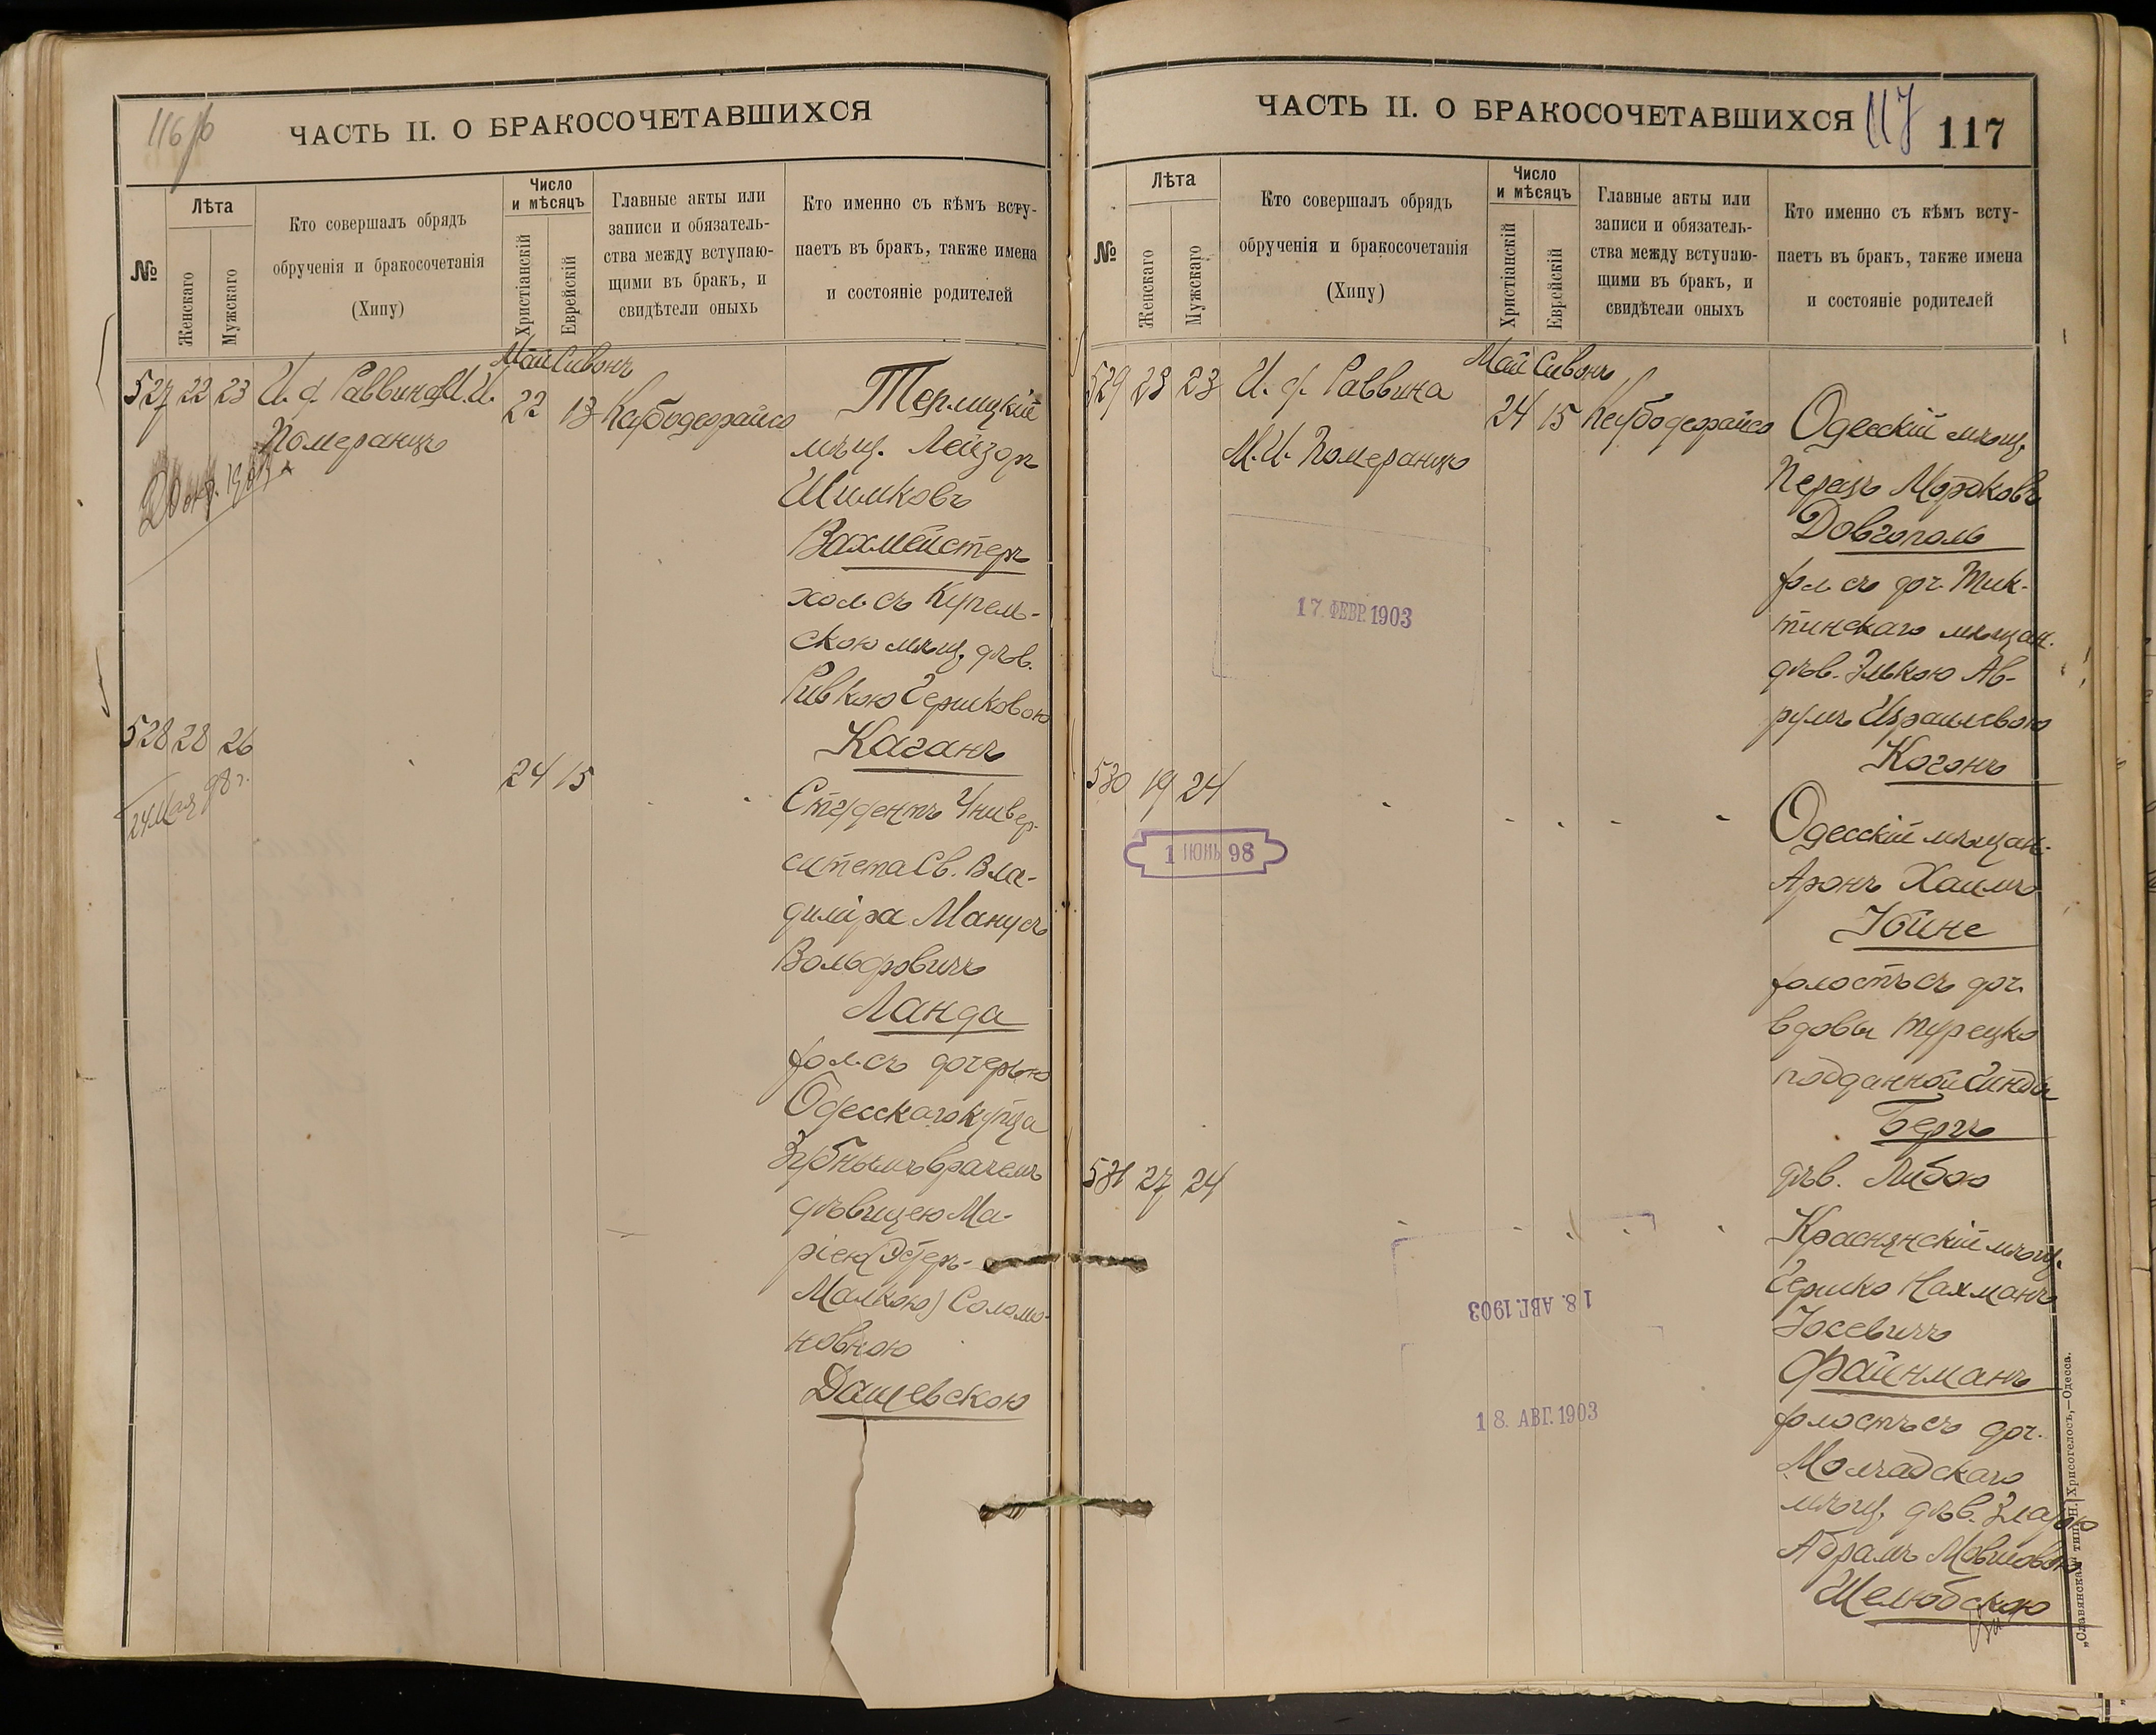 116 об
ЧАСТЬ II. О БРАКОСОЧЕТАВШИХСЯ
№
Лѣта
Женскаго
Мужскаго
Кто совершалъ обрядъ
обрученія и бракосочетанія
(Хипу)
Число
и мѣсяцъ
Христіанскій
Еврейскій
Главные акты или
записи и обязатель-
ства между вступаю-
щими въ бракъ, и
свидѣтели оныхъ
Кто именно съ кѣмъ всту-
паетъ въ бракъ, также имена
и состояніе родителей
Май Сивонъ
527 22 23 И. д. Раввина М. И.
Померанцъ
22 13
Терлицкій
мѣщ. Лейзоръ
Шимковъ
Вахмейстеръ
хол. съ Купель-
скою мѣщ. дѣв.
Ривкою Гершковою
Каганъ
528 28 26
24 Мая 98 г.
24 15
Студентъ Универ-
ситета Св. Вла-
диміра Манусъ
Вольфовичъ
Ланда
хол. съ дочерью
Одесскаго купца
Зубнымъ врачемъ
дѣвицею Ма-
ріею (Эстеръ-
Малкою) Соломо-
новною
Дашевскою
ЧАСТЬ II. О БРАКОСОЧЕТАВШИХСЯ
117
117
№
Лѣта
Женскаго
Мужскаго
Кто совершалъ обрядъ
обрученія и бракосочетанія
(Хипу)
Число
и мѣсяцъ
Христіанскій
Еврейскій
Главные акты или
записи и обязатель-
ства между вступаю-
щими въ бракъ, и
свидѣтели оныхъ
Кто именно съ кѣмъ всту-
паетъ въ бракъ, также имена
и состояніе родителей
Май Сивонъ
529 23 23 И. д. Раввина
М. И. Померанцъ
24 15
Одесскій мѣщ.
Перецъ Мордковъ
Довгополь
хол. съ доч. Тик-
тинскаго мѣщан.
дѣв. Элькою Ав-
румъ Израилевою
Когонъ
17. ФЕВР. 1903
530 19 24
1 ИЮНЬ 98
Одесскій мѣщан.
Аронъ Хаимъ
Іойне
холостъ съ доч.
вдовы турецко
подданной Гинды
Бергъ
дѣв. Либою
531 27 24
Краснянскій мѣщ.
Гершко Нахманъ
Іосевичъ
Файнманъ
холостъ съ доч.
Молчадскаго
мѣщ. дѣв. Златою
Абрамъ Мовшовою
Шелюбскою
18. АВГ. 1903
18. АВГ. 1903
„Славянская" тип. Н. Хрисогелосъ,—Одесса.